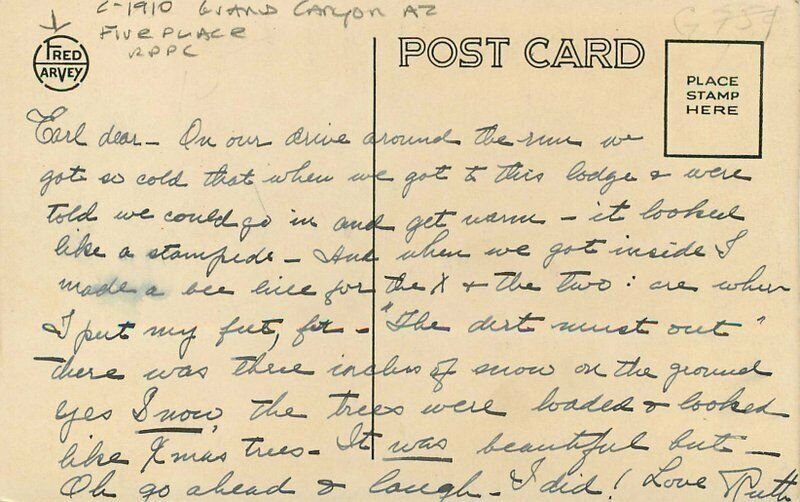 C-1910 GRAND CANYON AZ
FIVE PLACE
RPPC
FRED
HARVEY
POST CARD
PLACE
STAMP
HERE
Earl dear - On our drive around the rim we
got so cold that when we got to this lodge & were
told we could go in and get warm - it looked
like a stampede - And when we got inside I
made a bee line for the X & the two : are where
I put my feet, for - "The dirt must out"
there was three inches of snow on the ground
yes snow, the trees were loaded & looked
like Xmas trees - It was beautiful but -
Oh go ahead & laugh - I did! Love Ruth